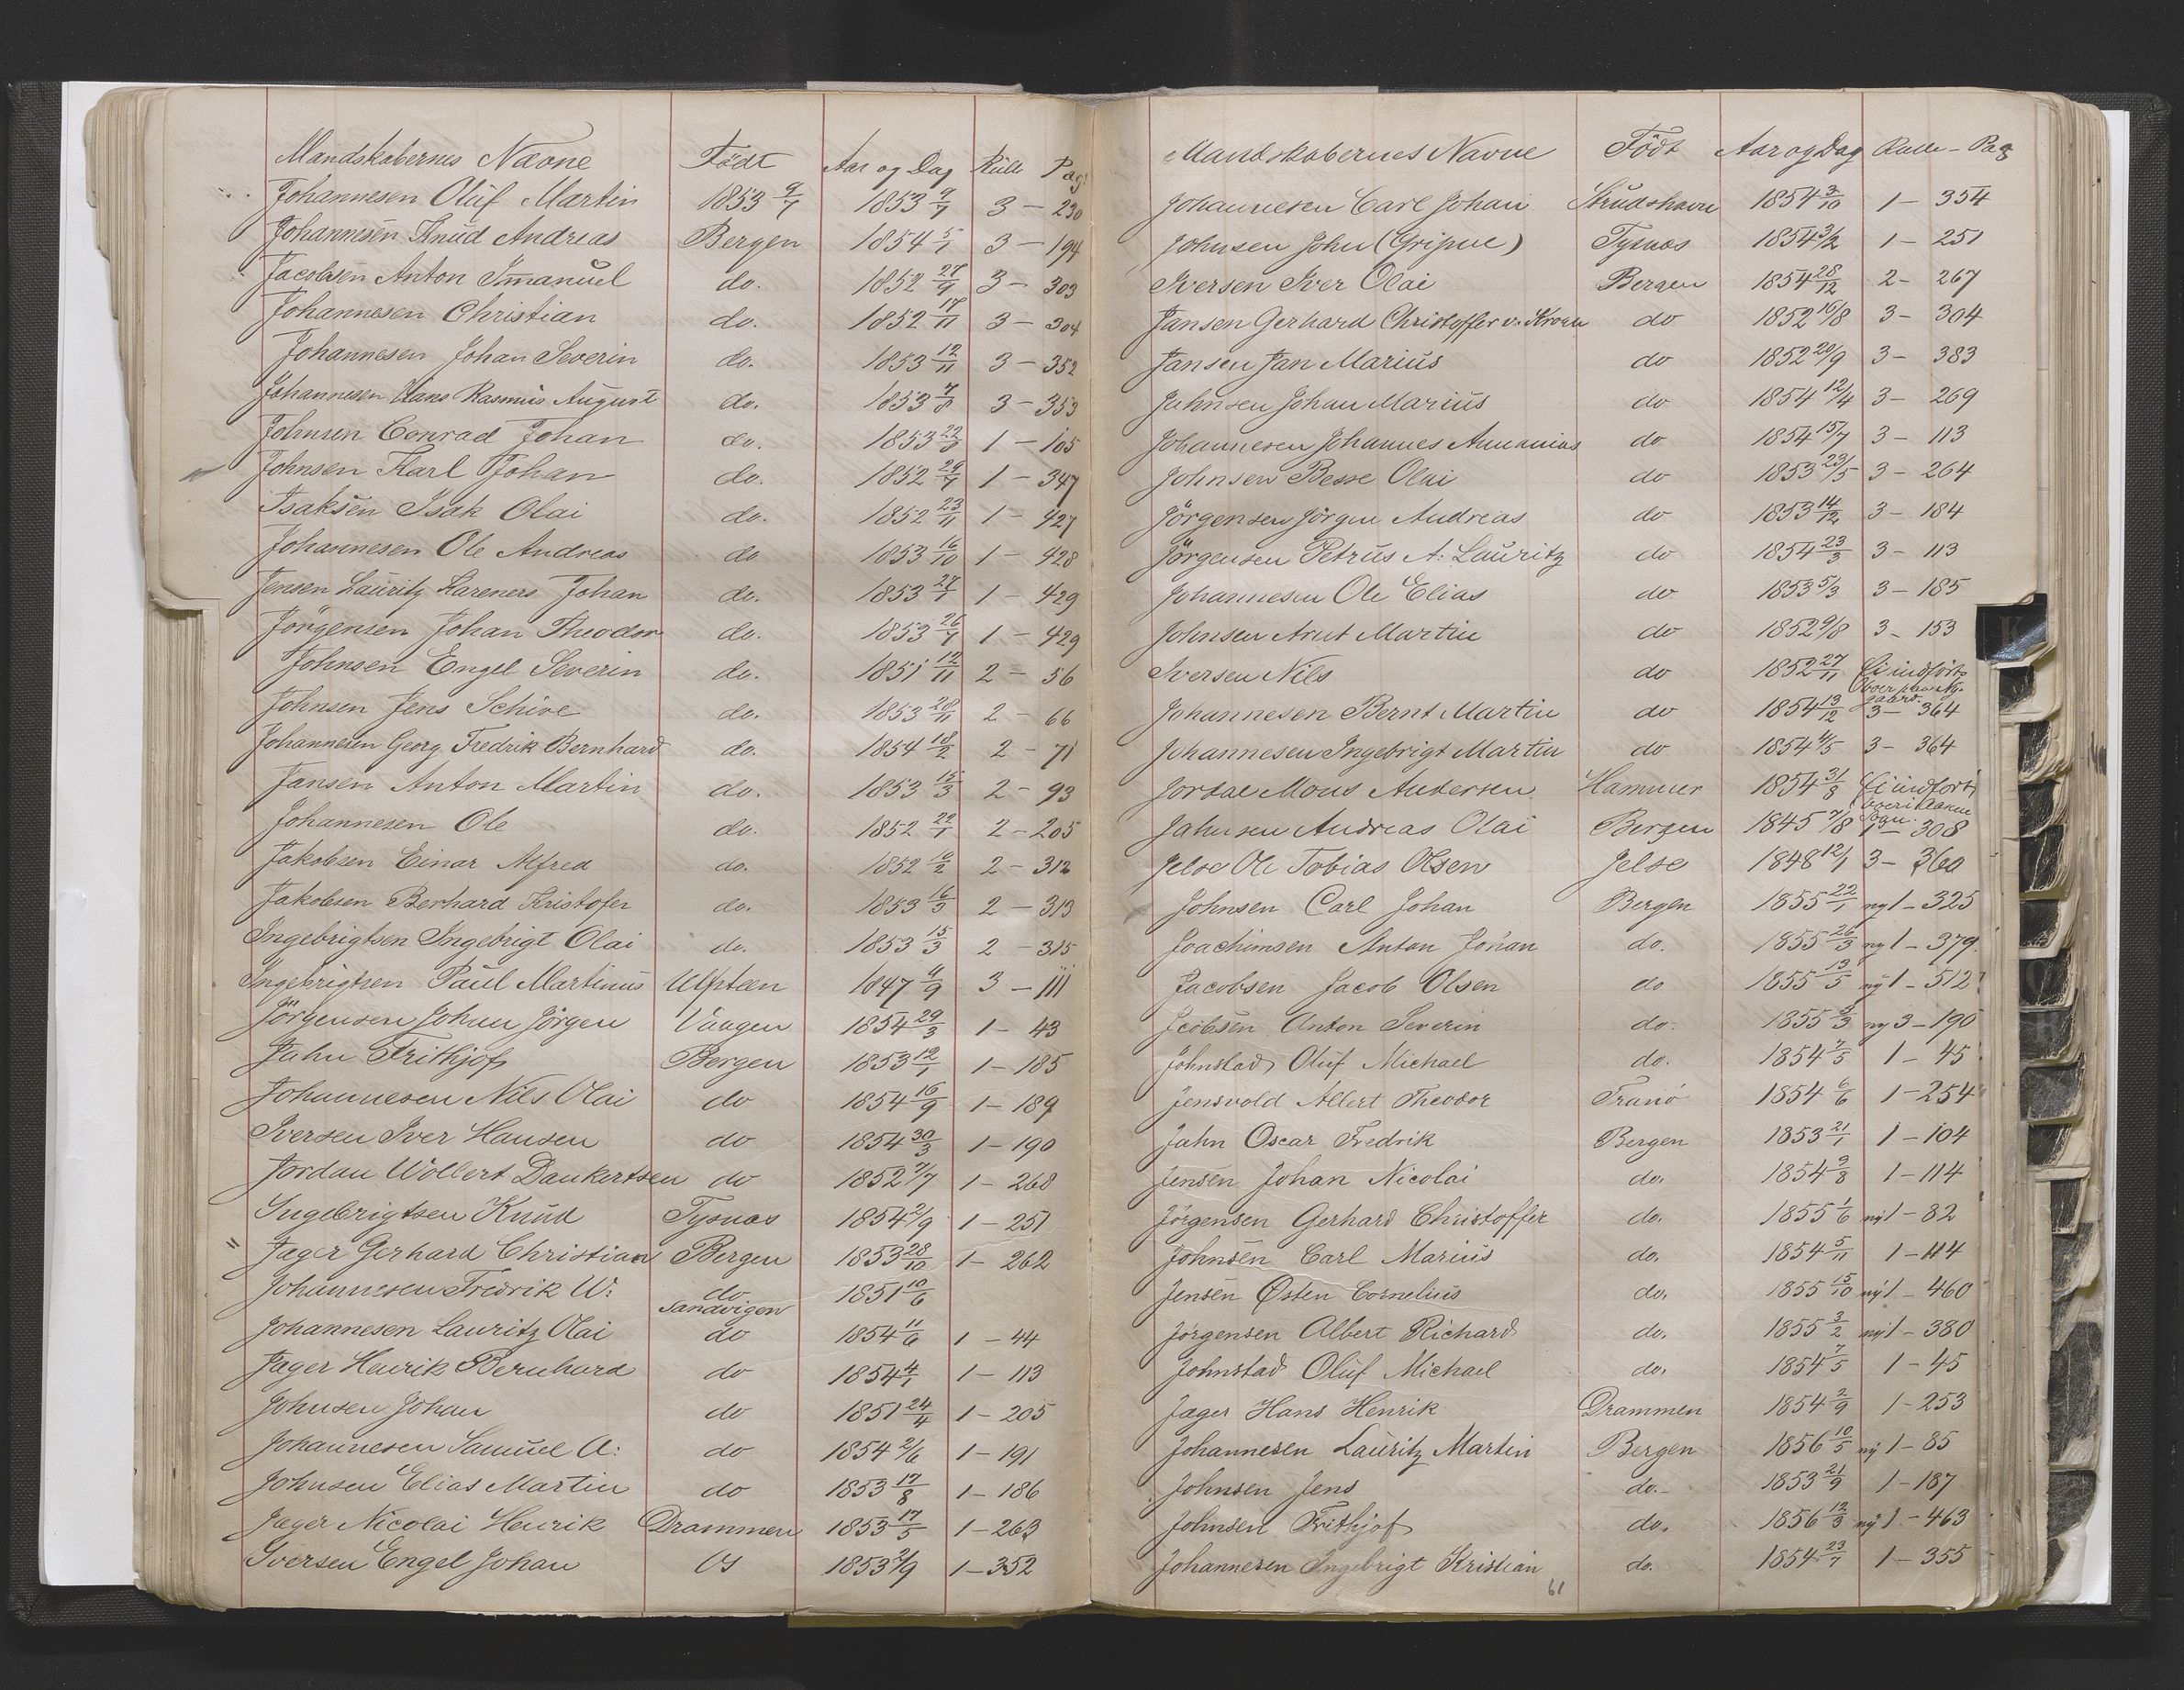 Mandskabernes Navne Födt Aar og Dag Rulle Pag:
Johannesen Oluf Martin 1853 9/7 1853 9/7 3 - 230
Johannesen Knud Andreas Bergen 1854 5/1 3 - 194
Jacobsen Anton Imanuel do. 1852 27/9 3 - 303
Johannesen Christian do. 1852 18/11 3 - 304
Johannesen Johan Severin do. 1853 12/11 3 - 352
Johannesen Hans Rasmus August do. 1853 7/8 3 - 353
Johnsen Conrad Johan do. 1853 1 - 105
Johnsen Karl Johan do. 1852 1 - 347
Isaksen Isak Olai do. 1852 23/11 1 - 427
Johannesen Ole Andreas do 1853 16/10 1 - 428
Jensen Lauritz Johan do. 1853 27/1 1 - 429
Jörgensen Johan Theodor do. 1853 26/7 1 - 429
Johnsen Engel Severin do. 1851 12/11 2 - 56
Johnsen Jens Schive do. 1853 28/11 2 - 66
Johannesen Georg Fredrik Bernhard do. 1854 18/2 2 - 71
Jansen Anton Martin do. 1853 15/3 2 - 93
Johannesen Ole do. 1852 22/1 2 - 205
Jakobsen Einar Alfred do. 1852 10/2 2 - 312
Jakobsen Berhard Kristofer do. 1853 16/3 2 - 313
Ingebrigtsen Ingebrigt Olai do. 1853 15/3 2 - 315
Ingebrigtsen Paul Martinus Ulfsteen 1847 4/9 3 - 111
Jörgensen Johan Jörgen Vaagen 1854 29/3 1 - 43
Jahn Frithjof Bergen 1853 12/1 1 - 185
Johannesen Nils Olai do 1854 16/9 1 - 189
Iversen Iver Hansen do 1854 30/3 1 - 190
Jordan Wollert Dankertsen do 1852 7/7 1 - 268
Ingebrigtsen Knud Tysnæs 1854 2/9 1 - 251
" Jæger Gerhard Christian Bergen 1853 28/10 1 - 262
Johannesen Fredrik W: do Sandvigen 1851 10/6
Johannesen Lauritz Olai do 1854 11/6 1 - 44
Jæger Henrik Bernhard do 1854 4/1 1 - 113
Johnsen Johan do 1851 24/4 1 - 205
Johannesen Samuel A: do 1854 2/6 1 - 191
Johnsen Elias Martin do 1853 17/8 1 - 186
Jæger Nicolai Henrik Drammen 1853 17/5 1 - 263
Iversen Engel Johan Os 1853 2/9 1 - 352
Mandskabernes Navne Födt Aar og Dag Rulle - Pag
Johannesen Carl Johan Strudshavn 1854 3/10 1 - 354
Johnsen John (Gripne) Tysnæs 1854 3/2 1 - 251
Iversen Iver Olai Bergen 1854 28/12 2 - 267
Jansen Gerhard Christoffer v. Krogh do 1852 16/8 3 - 304
Jansen Jan Marius do 1852 20/9 3 - 383
Jahnsen Johan Marius do 1854 12/4 3 - 269
Johannesen Johannes Annanias do 1854 15/7 3 - 113
Johnsen Besse Olai do 1853 23/5 3 - 264
Jörgensen Jörgen Andreas do 1853 14/12 3 - 184
Jörgensen Petrus A. Lauritz do 1854 23/3 3 - 113
Johannesen Ole Elias do 1853 5/3 3 - 185
Johnsen Arnt Martin do 1852 9/8 3 - 153
Iversen Nils do 1852 27/11 Ei indfört
Johannesen Bernt Martin do 1854 13/12 3 - 364
Johannesen Ingebrigt Martin do 1854 4/5 3 - 364
Jordal Mons Andersen Hammer 1854 31/8 Ei indfört
Jahnsen Andreas Olai Bergen 1845 7/8 1 - 308
Jelse Ole Tobias Olsen Jelse 1848 12/1 3 - 360
Johnsen Carl Johan Bergen 1855 22/1 ny 1 - 325
Joachimsen Anton Johan do. 1855 26/3 ny 1 - 379
Jacobsen Jacob Olsen do 1855 13/5 ny 1 - 512
Jcobsen Anton Severin do. 1855 ny 3 - 190
Johnstad Oluf Michael do. 1854 7/5 1 - 45
Jensvold Albert Theodor Tranö 1854 6/6 1 - 254
Jahn Oscar Fredrik Bergen 1853 21/1 1 - 104
Jensen Johan Nicolai do. 1854 9/8 1 - 114
Jörgensen Gerhard Christoffer do. 1855 1/6 ny 1 - 82
Johnsen Carl Marius do. 1854 5/11 1 - 114
Jensen Østen Cornelius do. 1855 15/10 ny 1 - 460
Jörgensen Albert Richard do. 1855 3/2 ny 1 - 380
Johnstad Oluf Michael do. 1854 7/5 1 - 45
Jæger Hans Henrik Drammen 1854 2/9 1 - 253
Johannesen Lauritz Martin Bergen 1856 10/5 ny 1 - 85
Johnsen Jens do. 1853 21/9 1 - 187
Johnsen Frithjof do. 1856 12/3 ny 1 - 463
Johannesen Ingebrigt Kristian do. 1854 23/7 1 - 355
61
K